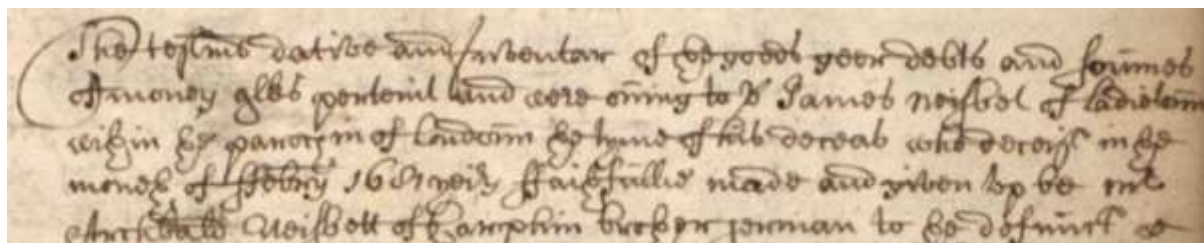 The testment dative and Inventar of ye goods geer debts and soumes
off money qlks perteinit and were owing to James Neisbet of Ladietoun
within ye paroch of Loudoun ye tyme of his deceas who deceist in ye
moneth of ffebry 1681 yeirs ffaithfullie made and given up be
Archbald Neisbett of Carphin brother german to ye defunct